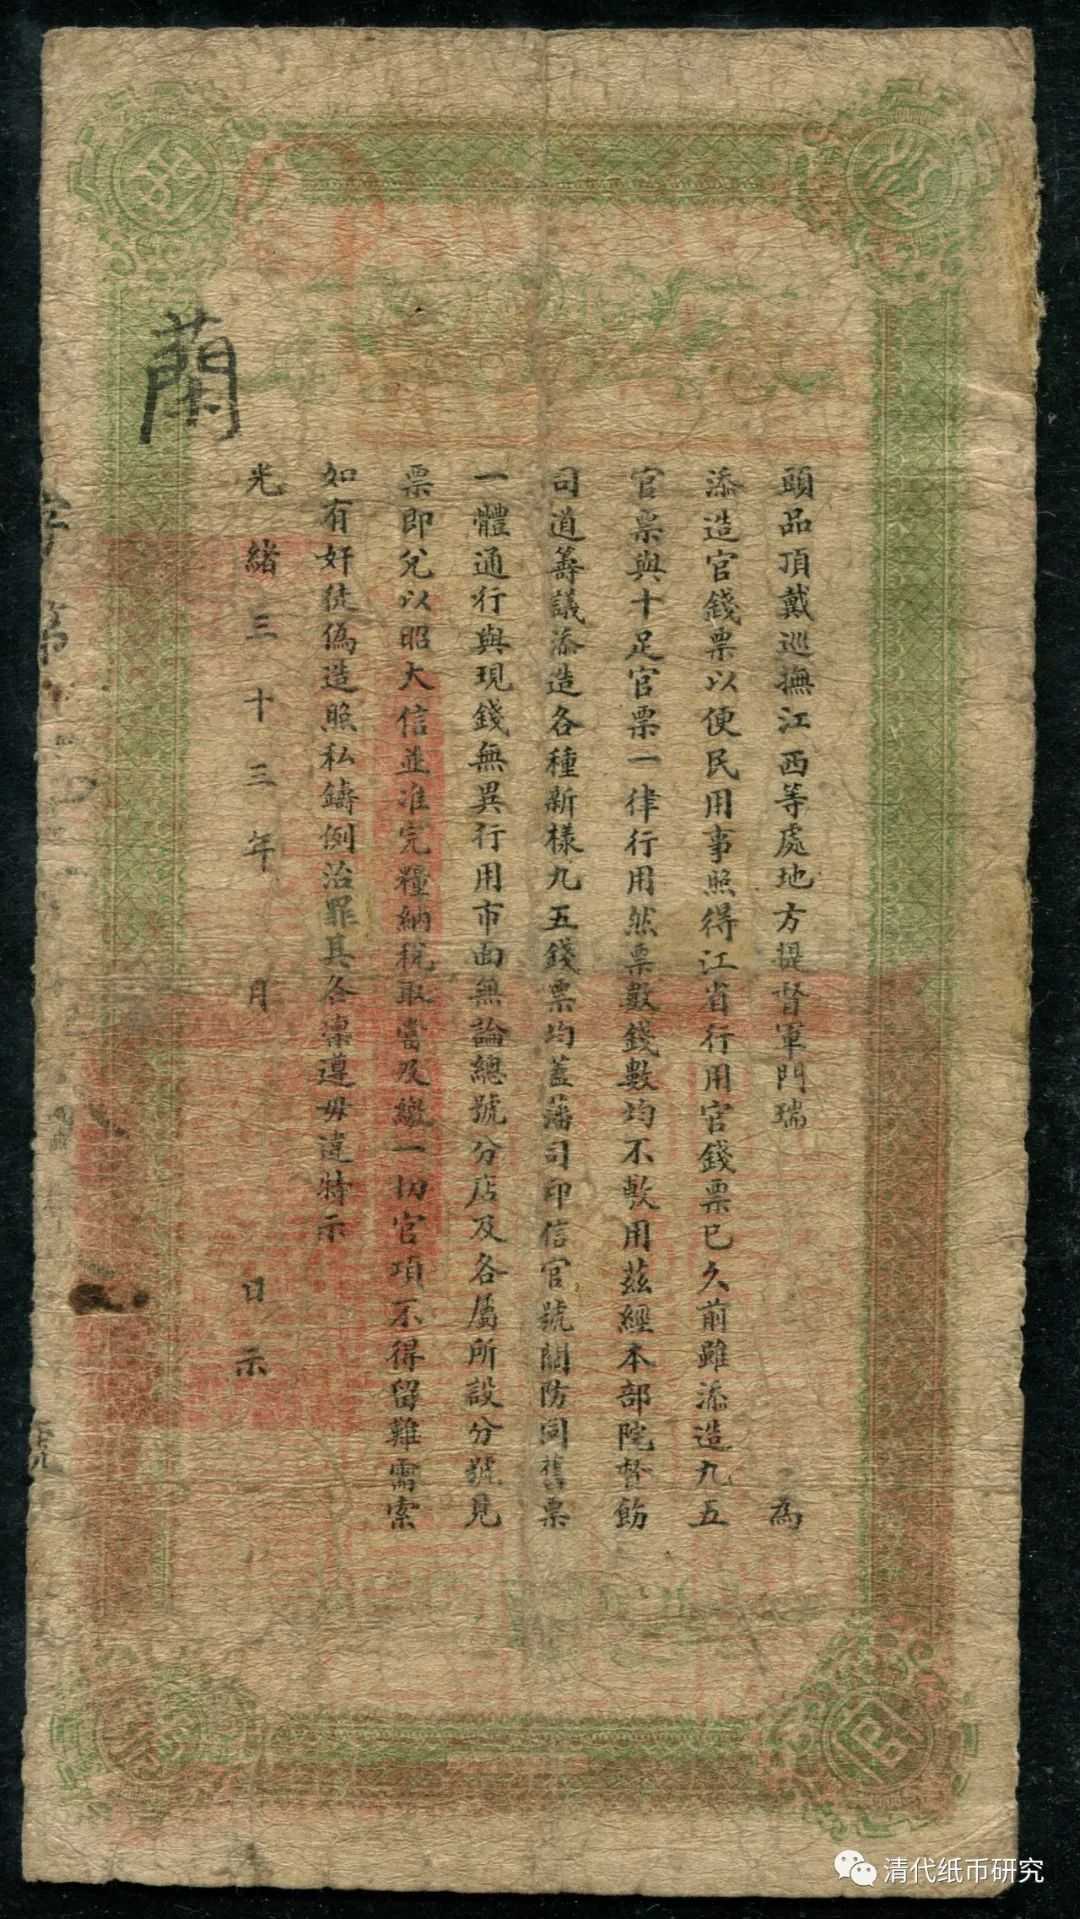 江
西
官
頭品頂戴巡撫江西等處地方提督軍門瑞 為
添造官錢票以便民用事照得江省行用官錢票已久前雖添造九五
官票與十足官票一律行用然票數錢數均不敷用茲經本部院督飭
司道籌議添造各種新樣九五錢票均蓋藩司印信官號關防同舊票
一體通行與現錢無異行用市面無論總號分店及各屬所設分號見
票即兌以昭大信並准完糧納稅取當及繳一切官項不得留難需索
如有奸徒偽造照私鑄例治罪其各凜遵毋違特示
光緒三十三年 月 日示
蘭
字第
號
清代纸币研究